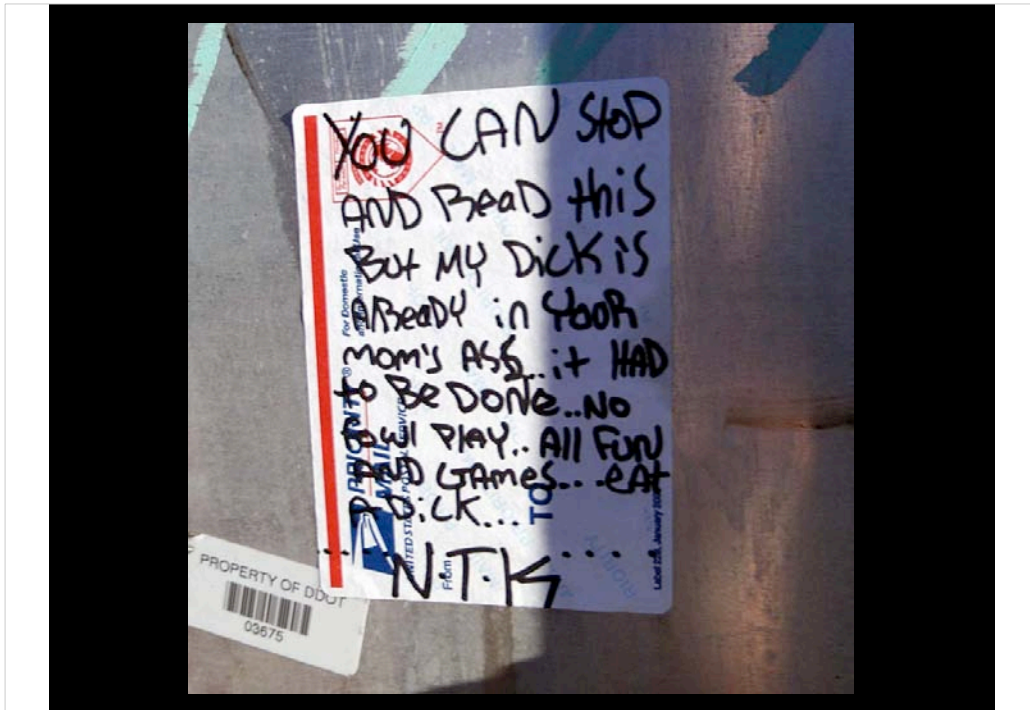 YOU CAN StoP
AND ReaD this
But MY DiCK is
AlReaDY in YooR
mom's ASS..it HAD
to Be DONe..NO
FOWl PlAY..All FUN
AND GAmes...eAt
A DiCK...
...N.T.K...
PRIORITY®
MAIL
UNITED STATES POSTAL SERVICE
For Domestic
and International Use
TM
From
TO
Label 228, January 2008
PROPERTY OF DDOT
03675